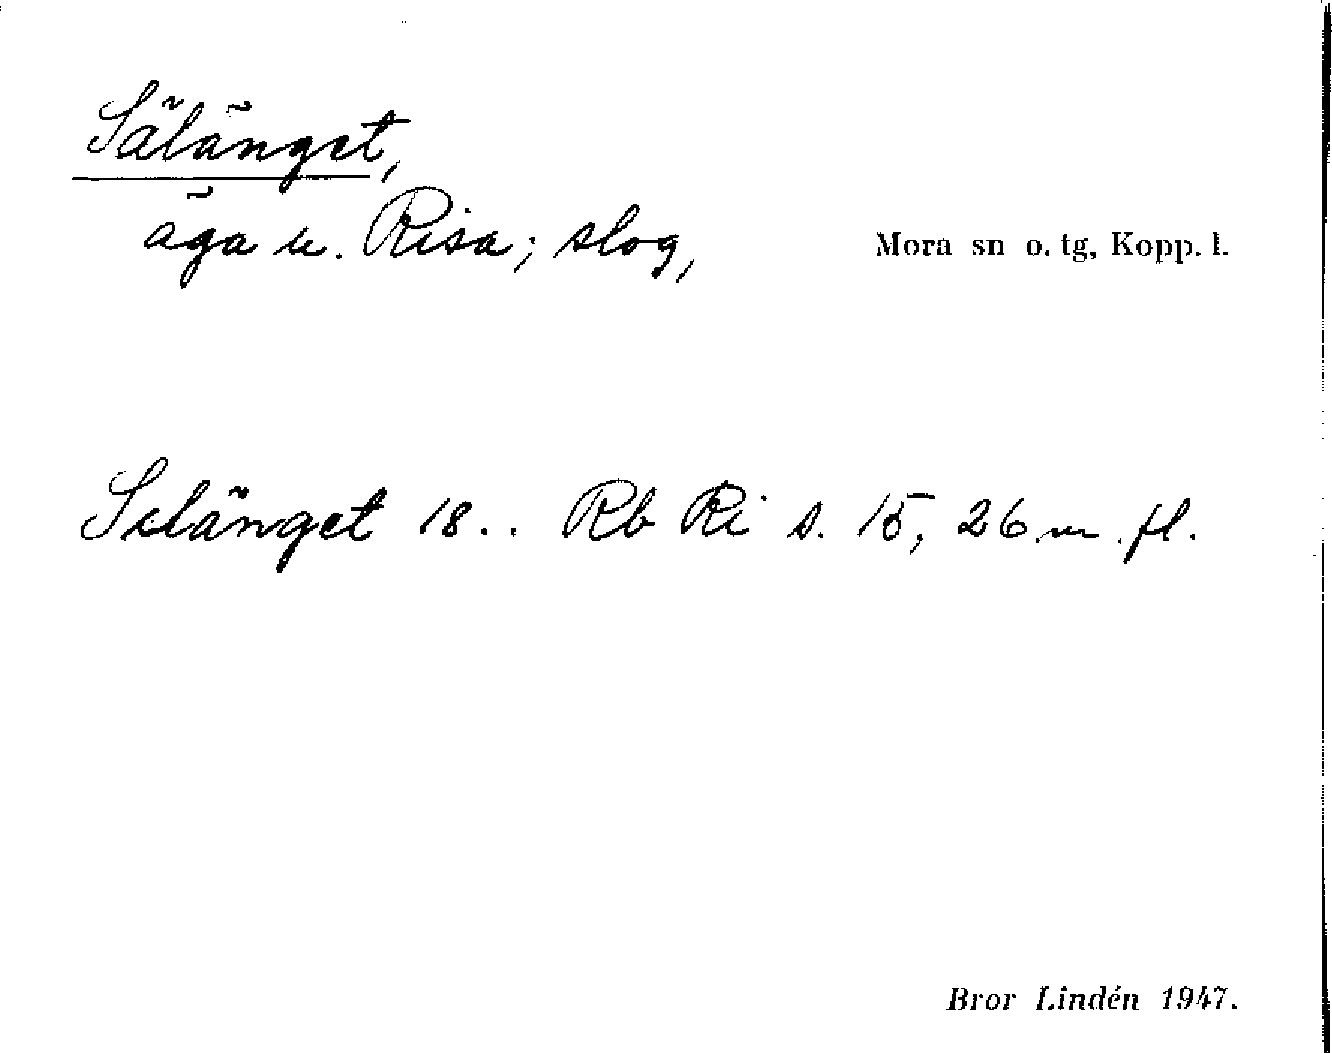 Sälänget,
äga u. Risa; slog,
Mora sn o. tg, Kopp. l.
Selänget 18.. Rb Ri s. 15, 26 m. fl.
Bror Lindén 1947.